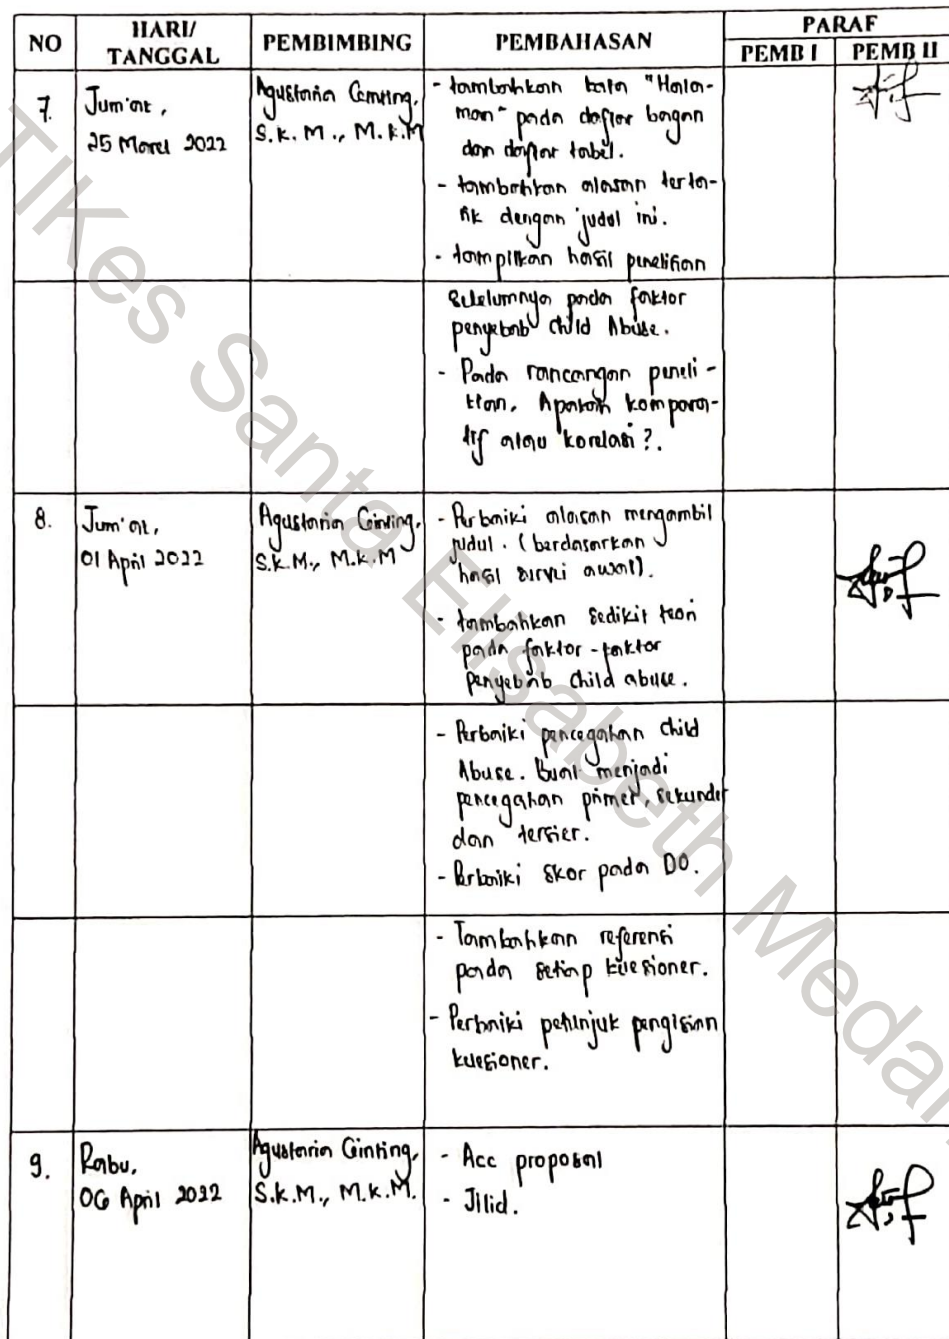 NO
HARI/
TANGGAL
PEMBIMBING
PEMBAHASAN
PARAF
PEMB I
PEMB II
7.
Jum'at,
25 Maret 2022
Agustaria Ginting,
S.K.M., M.K.M
- tambahkan kata "Hala-
man" pada daftar bagan
dan daftar tabel.
- tambahkan alasan terta-
rik dengan judul ini.
- tampilkan hasil penelitian
sebelumnya pada faktor
penyebab child Abuse.
- Pada rancangan peneli-
tian, Apakah kompara-
tif atau korelasi?.
8.
Jum'at,
01 April 2022
Agustaria Ginting,
S.K.M., M.K.M
- Perbaiki alasan mengambil
judul. (berdasarkan
hasil survei awal).
- tambahkan sedikit teori
pada faktor-faktor
penyebab child abuse.
- Perbaiki pencegahan Child
Abuse. Buat menjadi
pencegahan primer, sekunder
dan tersier.
- Perbaiki skor pada DO.
- Tambahkan referensi
pada setiap kuesioner.
- Perbaiki petunjuk pengisian
kuesioner.
9.
Rabu,
06 April 2022
Agustaria Ginting,
S.K.M., M.K.M.
- Acc proposal
- Jilid.
STIKes Santa Elisabeth Medan